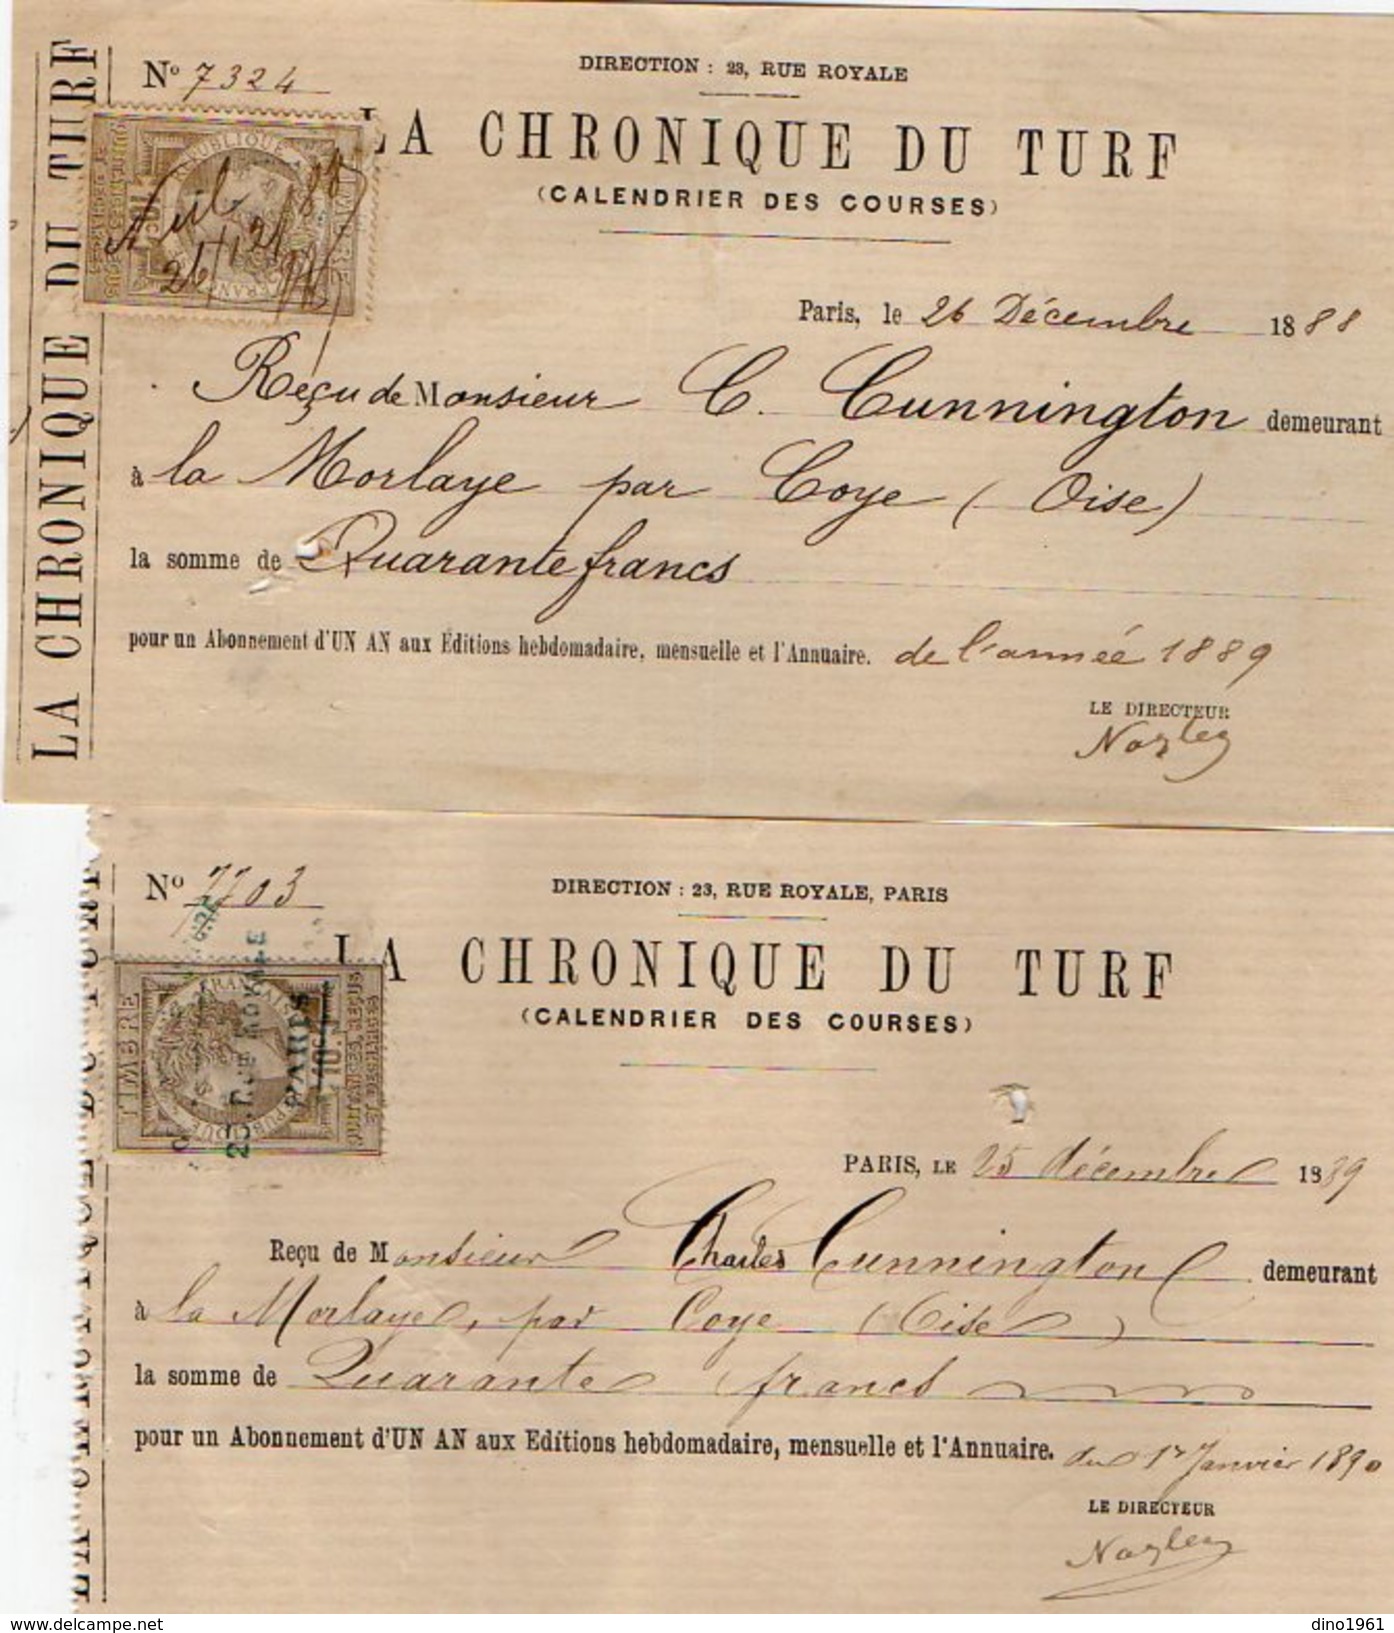 LA CHRONIQUE DU TURF
N° 7324
DIRECTION : 23, RUE ROYALE
LA CHRONIQUE DU TURF
(CALENDRIER DES COURSES)
Paris, le 26 Décembre 1888
Reçu de Monsieur C. Cunnington demeurant
à la Morlaye par Coye (Oise)
la somme de Quarante francs
pour un Abonnement d'UN AN aux Éditions hebdomadaire, mensuelle et l'Annuaire. de l'année 1889
LE DIRECTEUR
N° 7703
DIRECTION : 23, RUE ROYALE, PARIS
LA CHRONIQUE DU TURF
(CALENDRIER DES COURSES)
TIMBRE
QUITTANCES, REÇUS
ET DÉCHARGES
23, RUE ROYALE
PARIS
PARIS, LE 25 décembre 1889
Reçu de Monsieur Charles Cunnington demeurant
à la Morlaye, par Coye (Oise)
la somme de Quarante francs
pour un Abonnement d'UN AN aux Editions hebdomadaire, mensuelle et l'Annuaire. du 1er Janvier 1890
LE DIRECTEUR
delcampe.net
dino1961